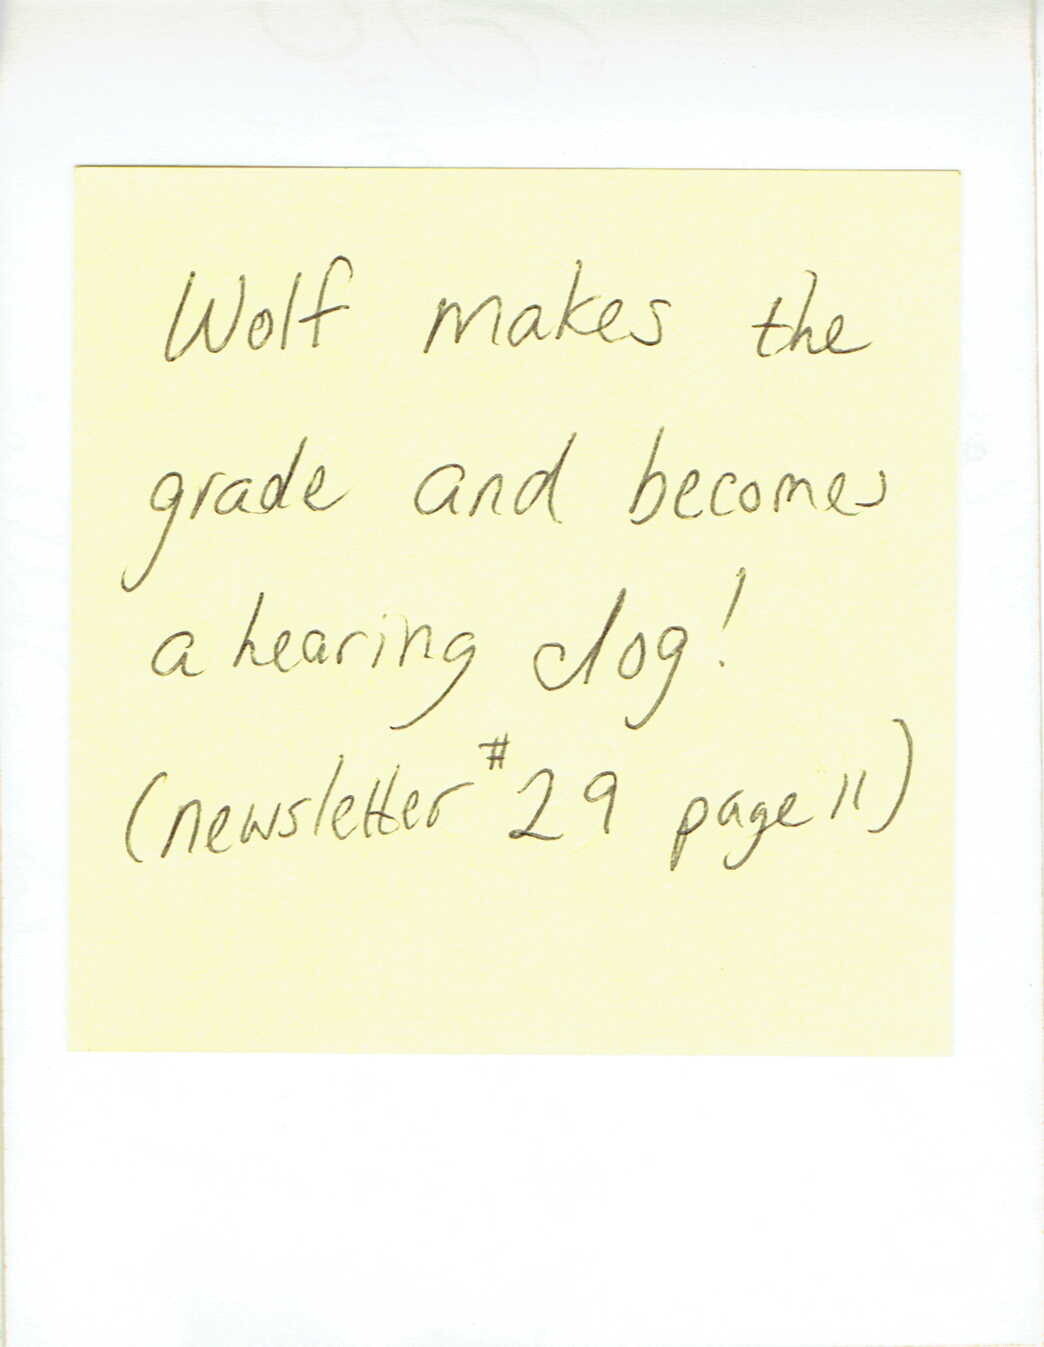 Wolf makes the
grade and becomes
a hearing dog!
(newsletter #29 page 11)